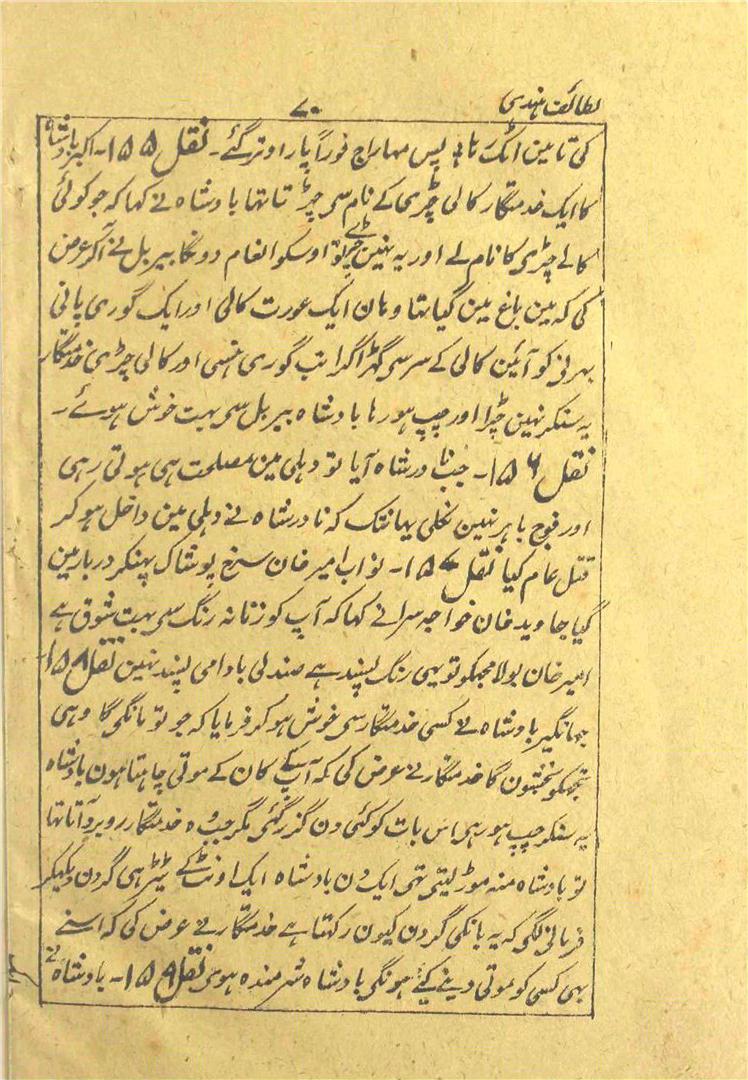 لطائف ہندی
۷۰
کی تا مین اٹک تا ہی پس مہاراج فوراً پار اوتر گئے۔ نقل ۱۵۵۔ اکبر بادشاہ
کا ایک خدمتگار کالی چڑی کے نام سی چڑتا تہا بادشاہ نے کہا کہ جو کوئی
کالے چڑی کا نام لے اور یہ نہین چڑے تو اوسکو انعام دونگا بیربل نے آکر عرض
کی کہ مین باغ مین گیا تہا وہان ایک عورت کالی اور ایک گوری پانی
بہرنی کو آئین کالی کے سر سی گہڑا گرا تب گوری ہنسی اور کالی چڑی خدمتگار
یہ سنکر نہین چڑا اور چپ ہو رہا بادشاہ بیربل سی بہت خوش ہوئے۔
نقل ۱۵۶۔ جب نادرشاہ آیا تو دہلی مین مصلحت ہی ہوتی رہی
اور فوج باہر نہین نکلی یہانتک کہ نادرشاہ نے دہلی مین داخل ہو کر
قتل عام کیا نقل ۱۵۷۔ نواب امیر خان سرخ پوشاک پہنکر دربار مین
گیا جاوید خان خواجہ سرا نے کہا کہ آپ کو زنانہ رنگ سی بہت شوق ہے
امیر خان بولا مجہکو تو یہی رنگ پسند ہے صندلی بادامی پسند نہین نقل ۱۵۸۔
جہانگیر بادشاہ نے کسی خدمتگار سی خوش ہو کر فرمایا کہ جو تو مانگی گا وہی
تجہکو بخشون گا خدمتگار نے عرض کی کہ آپ کے کان کے موتی چاہتا ہون بادشاہ
یہ سنکر چپ ہو رہی اس بات کو کئی دن گزر گئی مگر جب وہ خدمتگار روبرو آتا تہا
تو بادشاہ منہ موڑ لیتی تہی ایک دن بادشاہ ایک اونٹ کے ٹیڑہی گردن دیکہکر
فرمانی لگی کہ یہ بانکی گردن کیون رکہتا ہے خدمتگار نے عرض کی کہ اسنے
بہی کسی کو موتی دینے کہے ہونگی بادشاہ شرمندہ ہوی نقل ۱۵۹۔ بادشاہ نے